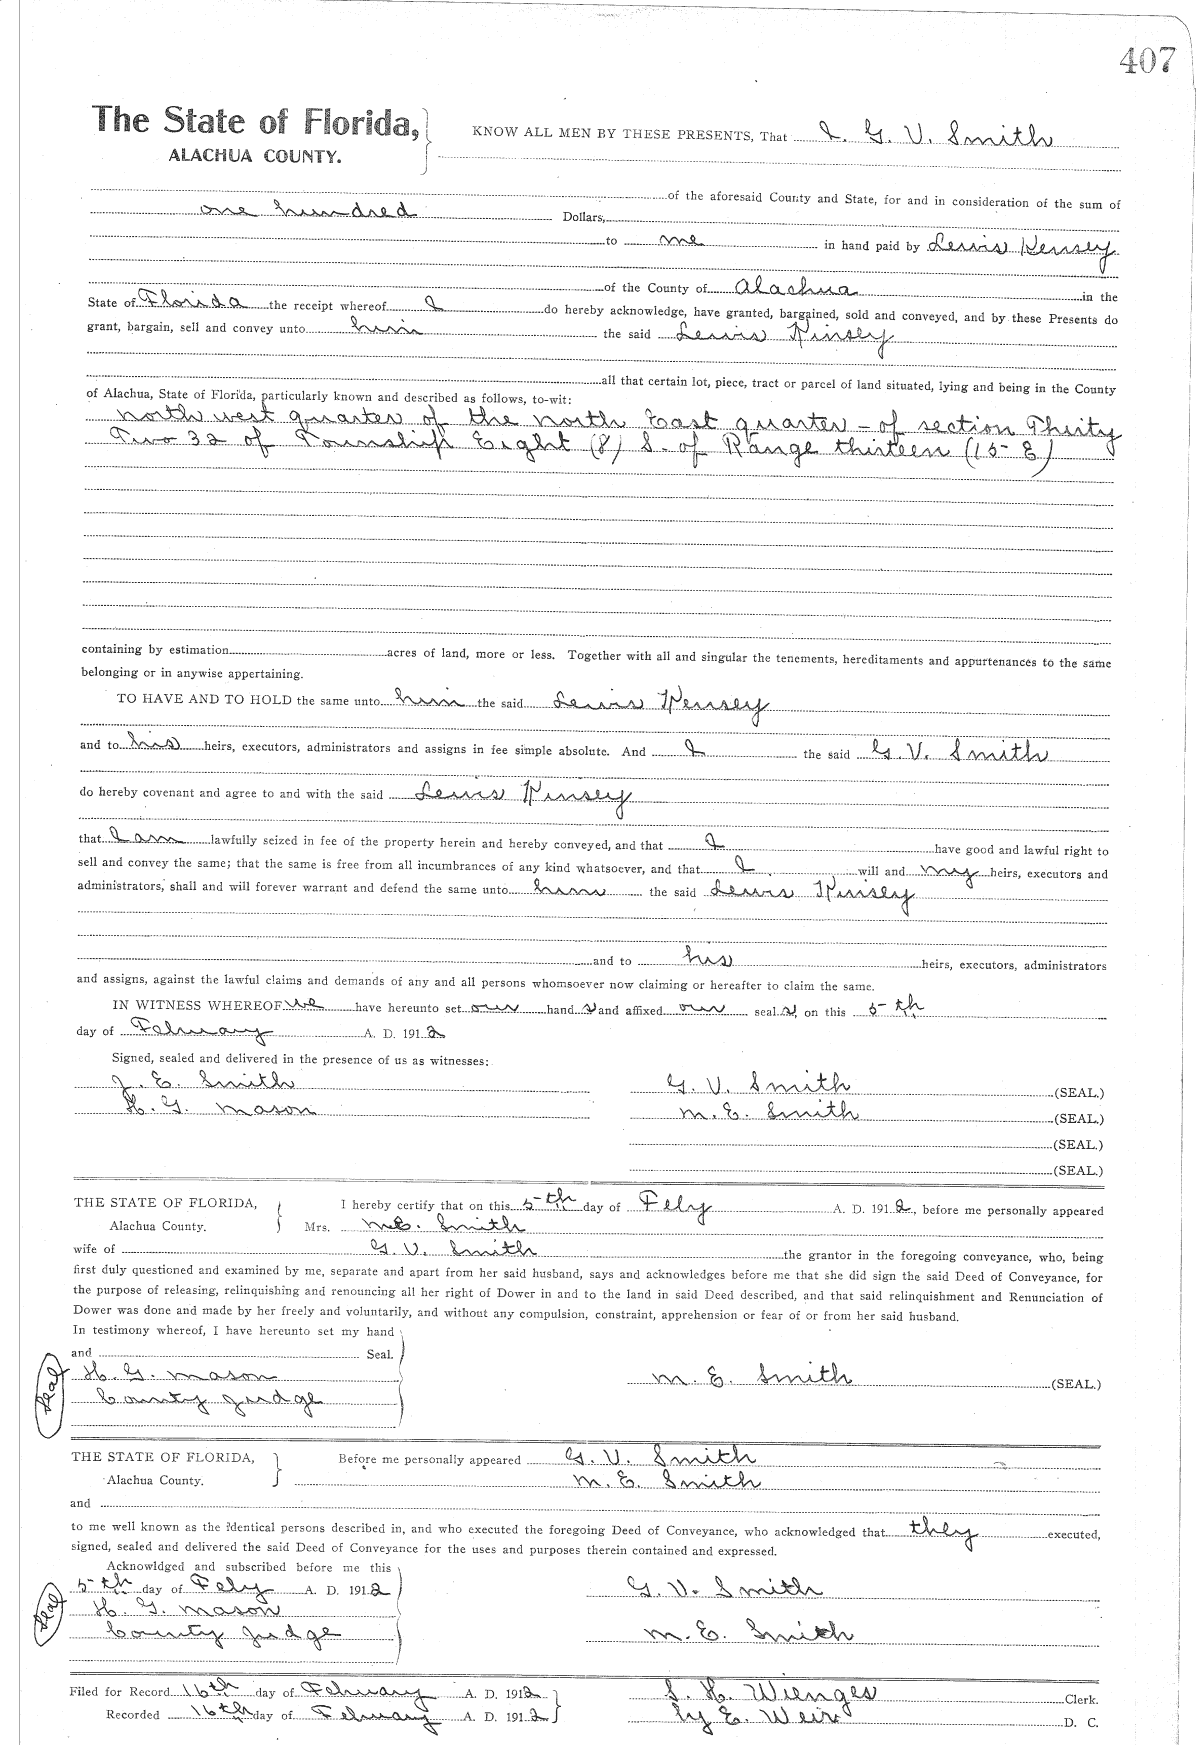 407
The State of Florida, KNOW ALL MEN BY THESE PRESENTS, That I. G. V. Smith
ALACHUA COUNTY.
of the aforesaid County and State, for and in consideration of the sum of
one hundred Dollars,
to me in hand paid by Lewis Kensey
of the County of Alachua in the
State of Florida the receipt whereof I do hereby acknowledge, have granted, bargained, sold and conveyed, and by these Presents do
grant, bargain, sell and convey unto him the said Lewis Kinsey
all that certain lot, piece, tract or parcel of land situated, lying and being in the County
of Alachua, State of Florida, particularly known and described as follows, to-wit:
north west quarter of the north East quarter - of section Thirty
Two 32 of Township Eight (8) S. of Range thirteen (15 E)
containing by estimation acres of land, more or less. Together with all and singular the tenements, hereditaments and appurtenances to the same
belonging or in anywise appertaining.
TO HAVE AND TO HOLD the same unto him the said Lewis Kensey
and to his heirs, executors, administrators and assigns in fee simple absolute. And I the said G. V. Smith
do hereby covenant and agree to and with the said Lewis Kinsey
that I am lawfully seized in fee of the property herein and hereby conveyed, and that I have good and lawful right to
sell and convey the same; that the same is free from all incumbrances of any kind whatsoever, and that I will and my heirs, executors and
administrators, shall and will forever warrant and defend the same unto him the said Lewis Kinsey
and to his heirs, executors, administrators
and assigns, against the lawful claims and demands of any and all persons whomsoever now claiming or hereafter to claim the same.
IN WITNESS WHEREOF we have hereunto set our hand s and affixed our seal s, on this 5th
day of February A. D. 1912
Signed, sealed and delivered in the presence of us as witnesses:
J. E. Smith G. V. Smith (SEAL.)
H. G. Mason M. E. Smith (SEAL.)
(SEAL.)
(SEAL.)
THE STATE OF FLORIDA, I hereby certify that on this 5th day of Feby A. D. 1912, before me personally appeared
Alachua County. Mrs. M.E. Smith
wife of G. V. Smith the grantor in the foregoing conveyance, who, being
first duly questioned and examined by me, separate and apart from her said husband, says and acknowledges before me that she did sign the said Deed of Conveyance, for
the purpose of releasing, relinquishing and renouncing all her right of Dower in and to the land in said Deed described, and that said relinquishment and Renunciation of
Dower was done and made by her freely and voluntarily, and without any compulsion, constraint, apprehension or fear of or from her said husband.
In testimony whereof, I have hereunto set my hand
and Seal.
Seal H. G. Mason M. E. Smith (SEAL.)
County Judge
THE STATE OF FLORIDA, Before me personally appeared G. V. Smith
Alachua County. M. E. Smith
and
to me well known as the identical persons described in, and who executed the foregoing Deed of Conveyance, who acknowledged that they executed,
signed, sealed and delivered the said Deed of Conveyance for the uses and purposes therein contained and expressed.
Acknowldged and subscribed before me this
5th day of Feby A. D. 1912 G. V. Smith
Seal H. G. Mason
County Judge M. E. Smith
Filed for Record 16th day of February A. D. 1912 S. H. Wienges Clerk.
Recorded 16th day of February A. D. 1912 by E. Weir D. C.